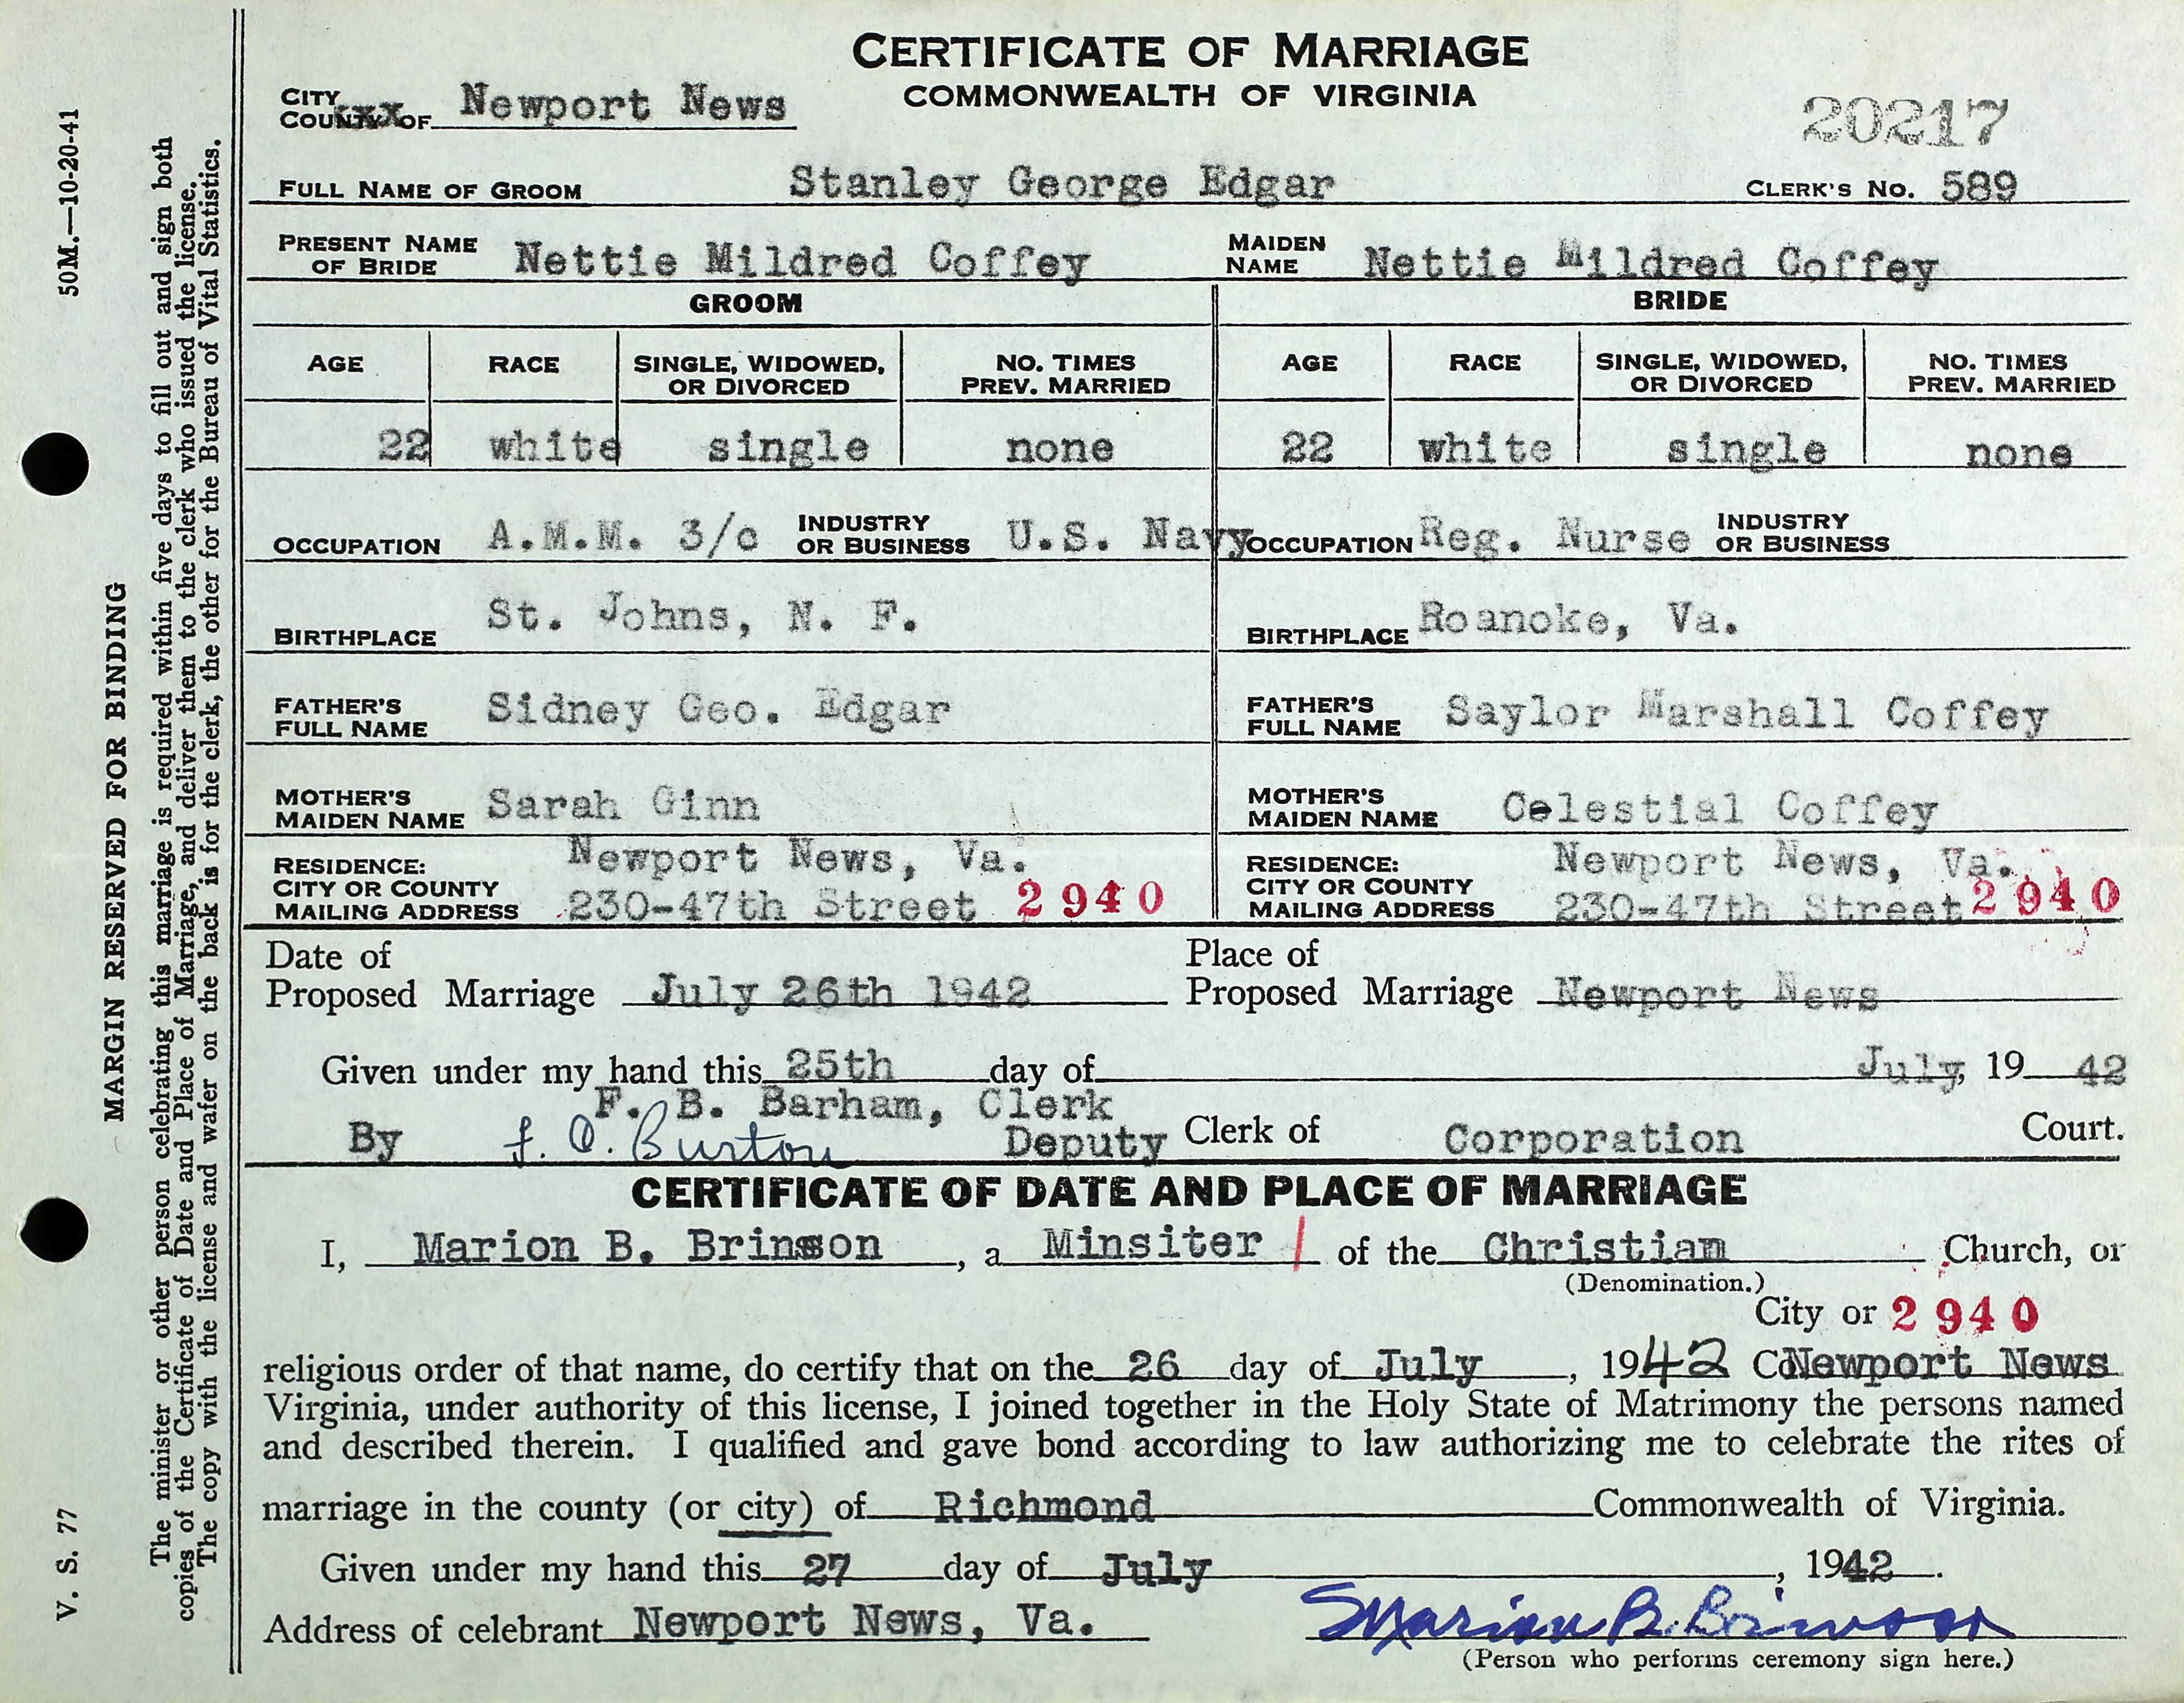 CERTIFICATE OF MARRIAGE
COMMONWEALTH OF VIRGINIA
CITY
COUNTY OF Newport News
20217
FULL NAME OF GROOM Stanley George Edgar CLERK'S NO. 589
PRESENT NAME OF BRIDE Nettie Mildred Coffey MAIDEN NAME Nettie Mildred Coffey
GROOM BRIDE
AGE RACE SINGLE, WIDOWED, OR DIVORCED NO. TIMES PREV. MARRIED AGE RACE SINGLE, WIDOWED, OR DIVORCED NO. TIMES PREV. MARRIED
22 white single none 22 white single none
OCCUPATION A.M.M. 3/c INDUSTRY OR BUSINESS U.S. Navy OCCUPATION Reg. Nurse INDUSTRY OR BUSINESS
BIRTHPLACE St. Johns, N. F. BIRTHPLACE Roanoke, Va.
FATHER'S FULL NAME Sidney Geo. Edgar FATHER'S FULL NAME Saylor Marshall Coffey
MOTHER'S MAIDEN NAME Sarah Ginn MOTHER'S MAIDEN NAME Celestial Coffey
RESIDENCE: Newport News, Va. RESIDENCE: Newport News, Va.
CITY OR COUNTY
MAILING ADDRESS 230-47th Street 2940 CITY OR COUNTY
MAILING ADDRESS 230-47th Street 2940
Date of Place of
Proposed Marriage July 26th 1942 Proposed Marriage Newport News
Given under my hand this 25th day of July, 19 42
F. B. Barham, Clerk
By F. O. Burton Deputy Clerk of Corporation Court.
CERTIFICATE OF DATE AND PLACE OF MARRIAGE
I, Marion B. Brinson, a Minsiter / of the Christian Church, or
(Denomination.)
City or 2940
religious order of that name, do certify that on the 26 day of July, 1942 Co Newport News
Virginia, under authority of this license, I joined together in the Holy State of Matrimony the persons named
and described therein. I qualified and gave bond according to law authorizing me to celebrate the rites of
marriage in the county (or city) of Richmond Commonwealth of Virginia.
Given under my hand this 27 day of July, 1942.
Address of celebrant Newport News, Va. Marion B. Brinson
(Person who performs ceremony sign here.)
V. S. 77 50M.—10-20-41
MARGIN RESERVED FOR BINDING
The minister or other person celebrating this marriage is required within five days to fill out and sign both
copies of the Certificate of Date and Place of Marriage, and deliver them to the clerk who issued the license.
The copy with the license and wafer on the back is for the clerk, the other for the Bureau of Vital Statistics.